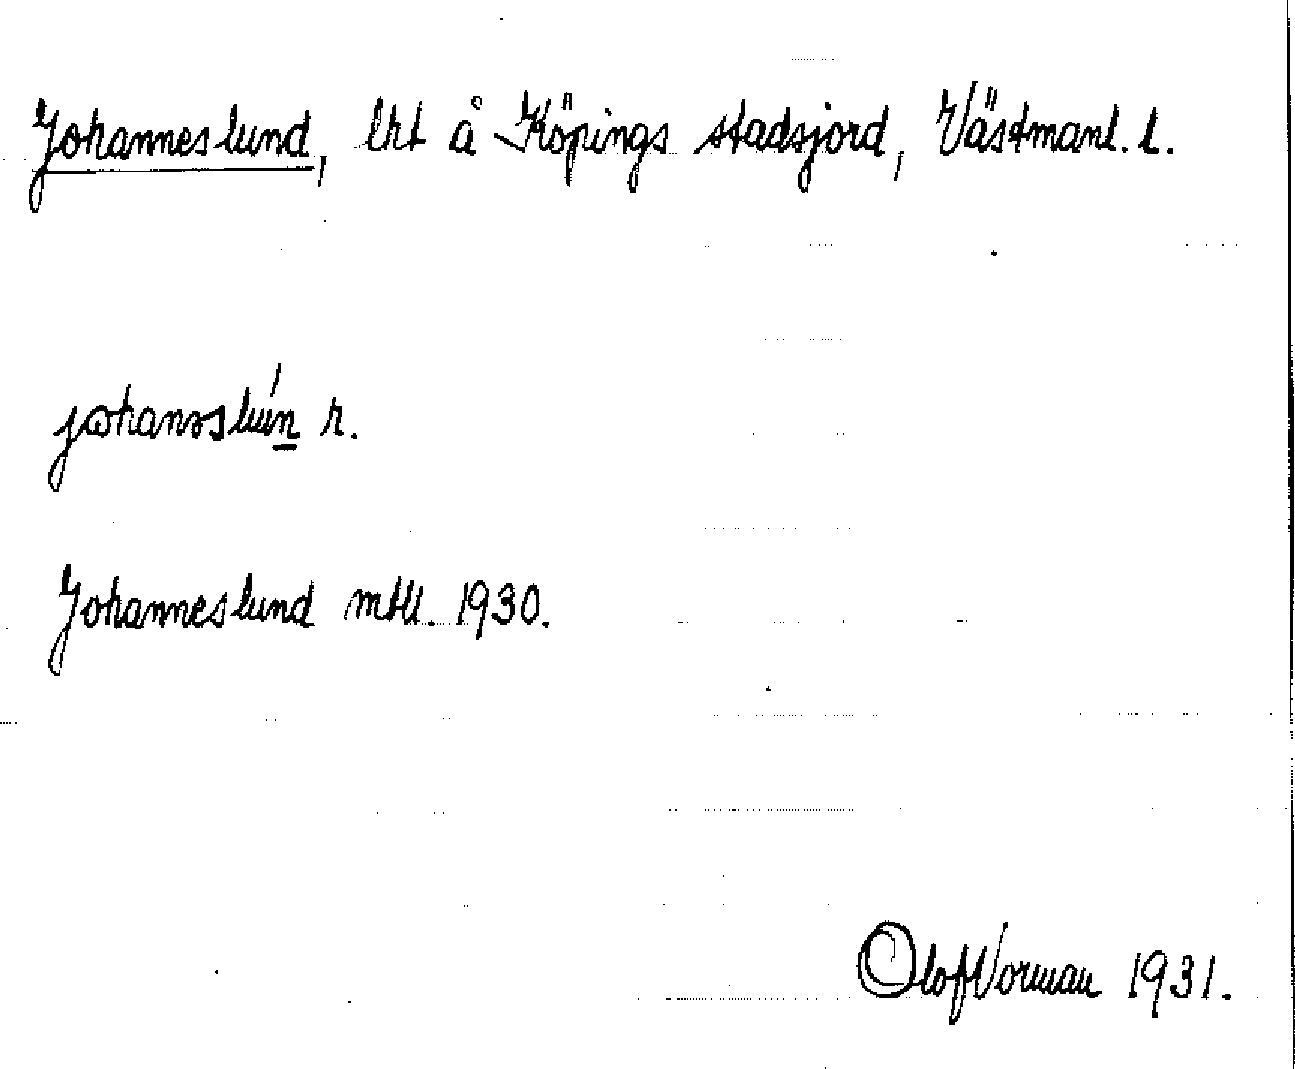 Johanneslund, lht å Köpings stadsjord, Västmanl. l.
r.
Johanneslund mtll. 1930.
Olof Vorman 1931.